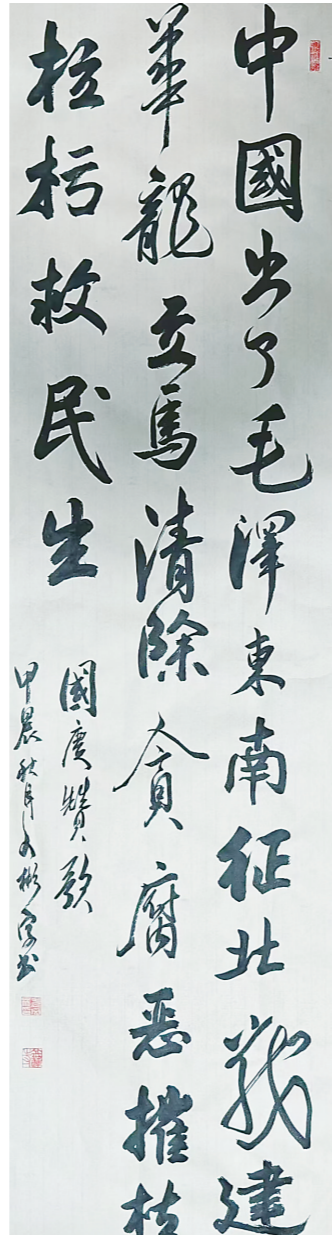 中國出了毛澤東南征北戰建
華龍立馬清除貪腐惡摧枯
拉朽救民生
國慶贊歌
甲晨秋月彬書